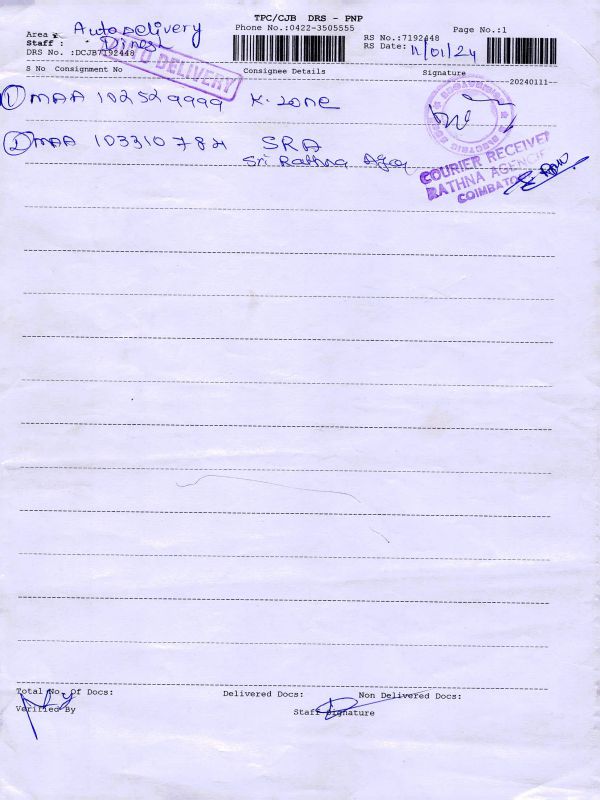 TPC/CJB DRS - PNP
Phone No.:0422-3505555
Page No.:1
Area : Auto Delivery
Staff : Dinesh
DRS No. :DCJB7192448
RS No.:7192448
RS Date: 11/01/24
AUTO DELIVERY
S No Consignment No Consignee Details Signature
20240111--
1) MAA 102529999 K. zone
2) MAA 103310784 SRA
Sri Rathna Agcy
COURIER RECEIVED
RATHNA AGENCIE
COIMBATO
Total No. Of Docs: Delivered Docs: Non Delivered Docs:
Verified By Staff Signature